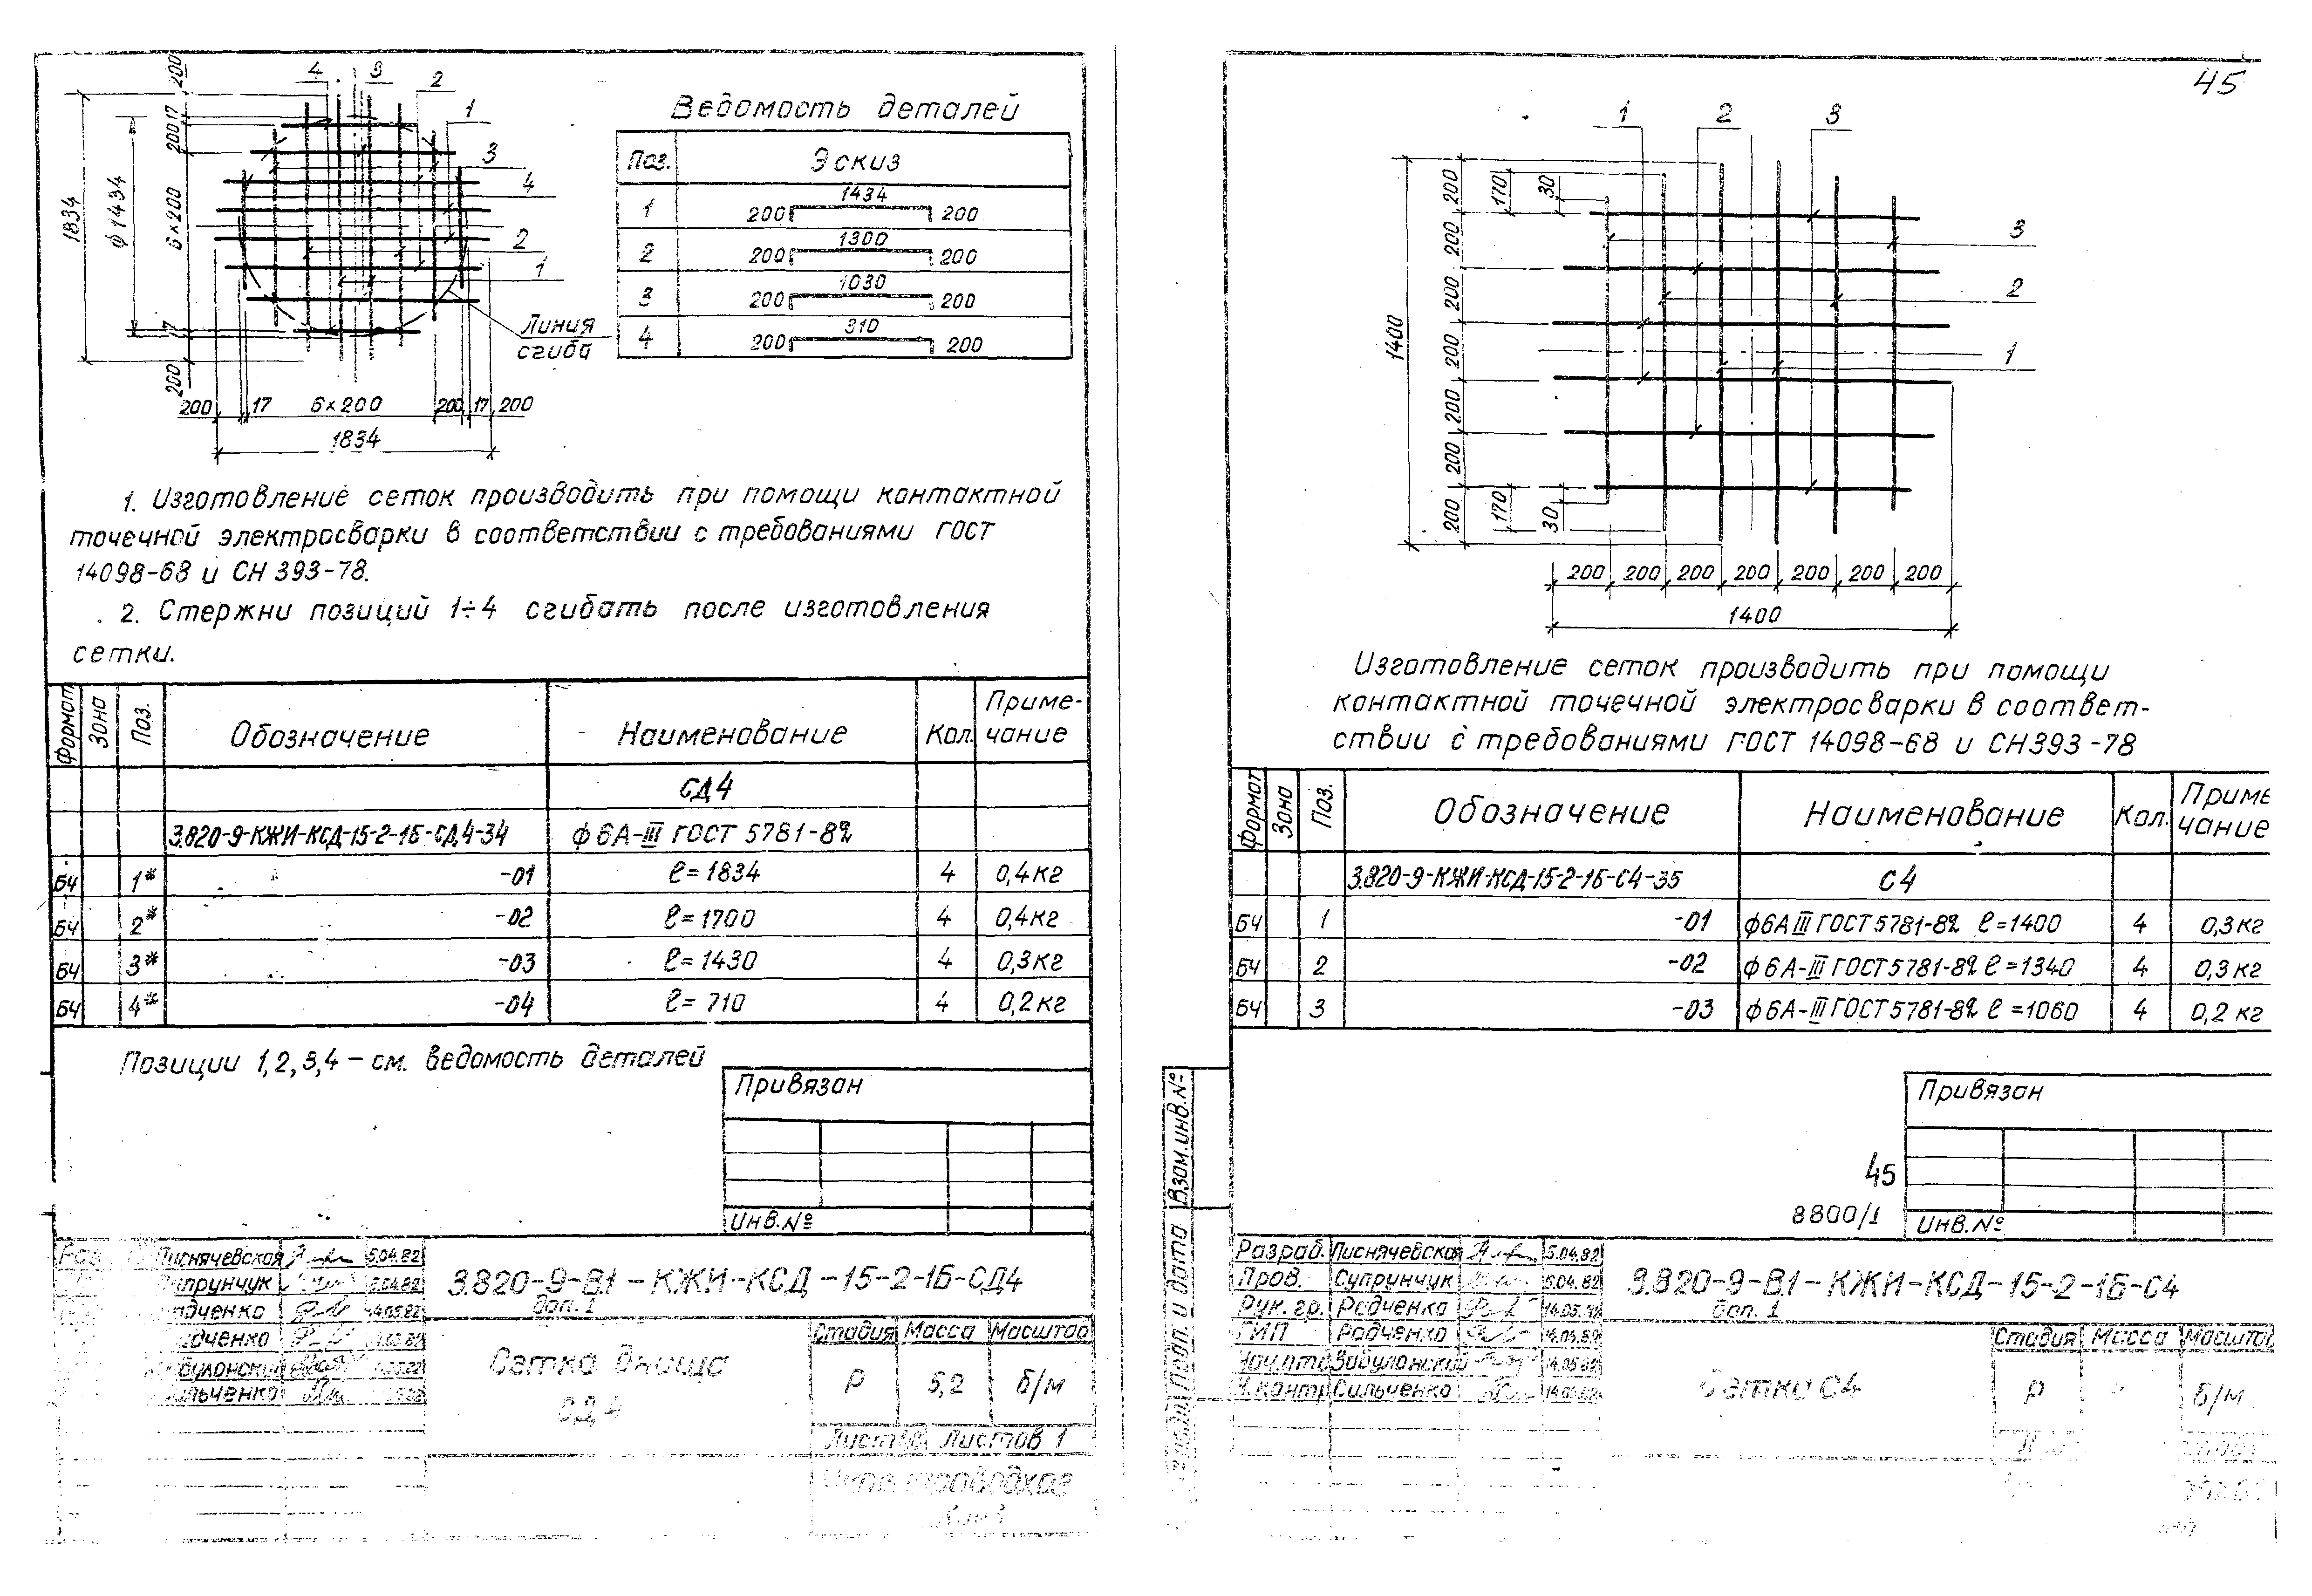 45
200
4 3 2 1
3
4
2
1
1834
ф1434
200 17
6×200
200
17
200
200 17 6×200 200 17 200
1834
Линия
сгиба
Ведомость деталей
Поз. Эскиз
1 200 1434 200
2 200 1300 200
3 200 1030 200
4 200 310 200
1. Изготовление сеток производить при помощи контактной
точечной электросварки в соответствии с требованиями ГОСТ
14098-68 и СН 393-78.
2. Стержни позиций 1÷4 сгибать после изготовления
сетки.
Формат Зона Поз. Обозначение Наименование Кол. Приме-
чание
СД4
3.820-9-КЖИ-КСД-15-2-1Б-СД4-34 ф6А-III ГОСТ 5781-82
БЧ 1* -01 ℓ=1834 4 0,4кг
БЧ 2* -02 ℓ=1700 4 0,4кг
БЧ 3* -03 ℓ=1430 4 0,3кг
БЧ 4* -04 ℓ=710 4 0,2кг
Позиции 1,2,3,4 – см. ведомость деталей
Привязан
Инв.№
Лиснячевская 5.04.82
3.820-9-В1-КЖИ-КСД-15-2-1Б-СД4
доп. 1
Сетка днища
СД4
Стадия Масса Масштаб
Р 5,2 б/м
Листов 1
1 2 3
3
2
1
1400
200 200 200 200 200 200 200
170 30
170 30
200 200 200 200 200 200 200
1400
Изготовление сеток производить при помощи
контактной точечной электросварки в соответ-
ствии с требованиями ГОСТ 14098-68 и СН393-78
Формат Зона Поз. Обозначение Наименование Кол. Приме
чание
3.820-9-КЖИ-КСД-15-2-1Б-С4-35 С4
БЧ 1 -01 ф6АIII ГОСТ 5781-82 ℓ=1400 4 0,3кг
БЧ 2 -02 ф6А-III ГОСТ 5781-82 ℓ=1340 4 0,3кг
БЧ 3 -03 ф6А-III ГОСТ 5781-82 ℓ=1060 4 0,2 кг
Взам.инв.№
Подп. и дата
Привязан
45
8800/1
Инв.№
Разраб. Лиснячевская 5.04.82
Пров. Супринчук 5.04.82
Рук. гр. Радченко
ГИП Радченко
Сильченко
3.820-9-В1-КЖИ-КСД-15-2-1Б-С4
доп. 1
Сетка С4
Стадия Масса Масштаб
Р б/м